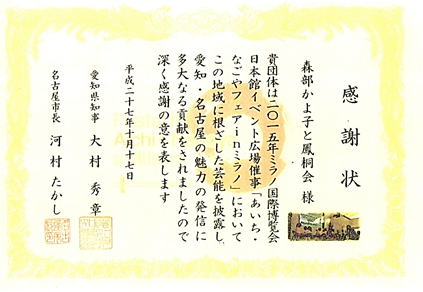 感謝状
森部かよ子と鳳桐会 様
貴団体は二〇一五年ミラノ国際博覧会
日本館イベント広場催事「あいち・
なごやフェアinミラノ」において
この地域に根ざした芸能を披露し、
愛知・名古屋の魅力の発信に
多大なる貢献をされましたので
深く感謝の意を表します
平成二十七年十月十七日
愛知県知事 大村秀章
名古屋市長 河村たかし